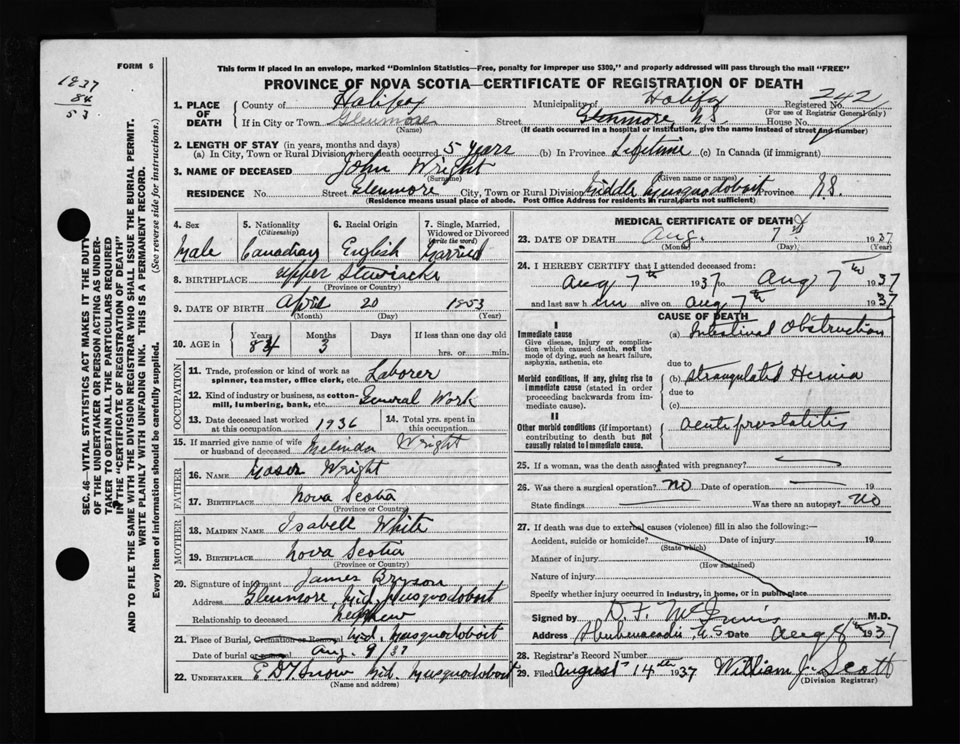 FORM 6
1937
84
53
This form if placed in an envelope, marked "Dominion Statistics—Free, penalty for improper use $300," and properly addressed will pass through the mail "FREE"
PROVINCE OF NOVA SCOTIA—CERTIFICATE OF REGISTRATION OF DEATH
SEC. 46—VITAL STATISTICS ACT MAKES IT THE DUTY
OF THE UNDERTAKER OR PERSON ACTING AS UNDER-
TAKER TO OBTAIN ALL THE PARTICULARS REQUIRED
IN THE "CERTIFICATE OF REGISTRATION OF DEATH"
AND TO FILE THE SAME WITH THE DIVISION REGISTRAR WHO SHALL ISSUE THE BURIAL PERMIT.
WRITE PLAINLY WITH UNFADING INK. THIS IS A PERMANENT RECORD.
Every item of information should be carefully supplied. (See reverse side for instructions.)
1. PLACE OF DEATH County of Halifax Municipality of Halifax Registered No. 242
(For use of Registrar General only)
If in City or Town Glenmore Street Glenmore, N.S. House No.
(Name) (If death occurred in a hospital or institution, give the name instead of street and number)
2. LENGTH OF STAY (in years, months and days)
(a) In City, Town or Rural Division where death occurred 5 years (b) In Province Lifetime (c) In Canada (if immigrant)
3. NAME OF DECEASED John Wright
(Surname) (Given name or names)
RESIDENCE No. Street Glenmore City, Town or Rural Division Middle Musquodoboit Province N.S.
(Residence means usual place of abode. Post Office Address for residents in rural parts not sufficient)
4. Sex Male
5. Nationality (Citizenship) Canadian
6. Racial Origin English
7. Single, Married, Widowed or Divorced (write the word) Married
8. BIRTHPLACE Upper Stewiacke
(Province or Country)
9. DATE OF BIRTH April 20 1853
(Month) (Day) (Year)
10. AGE in Years 84 Months 3 Days If less than one day old hrs. or min.
OCCUPATION
11. Trade, profession or kind of work as spinner, teamster, office clerk, etc. Laborer
12. Kind of industry or business, as cotton-mill, lumbering, bank, etc. General Work
13. Date deceased last worked at this occupation 1936
14. Total yrs. spent in this occupation
15. If married give name of wife or husband of deceased Melinda Wright
FATHER
16. NAME Moser Wright
17. BIRTHPLACE Nova Scotia
(Province or Country)
MOTHER
18. MAIDEN NAME Isabell White
19. BIRTHPLACE Nova Scotia
(Province or Country)
20. Signature of informant James Bryson
Address Glenmore, Mid. Musquodoboit
Relationship to deceased nephew
21. Place of Burial, Cremation or Removal Mid. Musquodoboit
Date of burial or removal Aug. 9/37
22. UNDERTAKER E D T. Snow Mid. Musquodoboit
(Name and address)
MEDICAL CERTIFICATE OF DEATH
23. DATE OF DEATH Aug. 7th 1937
(Month) (Day)
24. I HEREBY CERTIFY that I attended deceased from
Aug 7th 1937 to Aug 7th 1937
and last saw him alive on Aug 7th 1937
CAUSE OF DEATH
I
Immediate cause (a) Intestinal Obstruction
Give disease, injury or complication which caused death, not the mode of dying, such as heart failure, asphyxia, asthenia, etc
due to
Morbid conditions, if any, giving rise to immediate cause (stated in order proceeding backwards from immediate cause).
(b) Strangulated Hernia
due to
(c)
II
Other morbid conditions (if important) contributing to death but not causally related to immediate cause.
acute prostatitis
25. If a woman, was the death associated with pregnancy?
26. Was there a surgical operation? No Date of operation
State findings Was there an autopsy? No
27. If death was due to external causes (violence) fill in also the following:—
Accident, suicide or homicide? Date of injury 19
(State which)
Manner of injury
(How sustained)
Nature of injury
Specify whether injury occurred in industry, in home, or in public place
Signed by M.D.
Address Shubenacadie N.S. Date Aug 8th 1937
28. Registrar's Record Number
29. Filed August 14th 1937 William J. Scott
(Division Registrar)